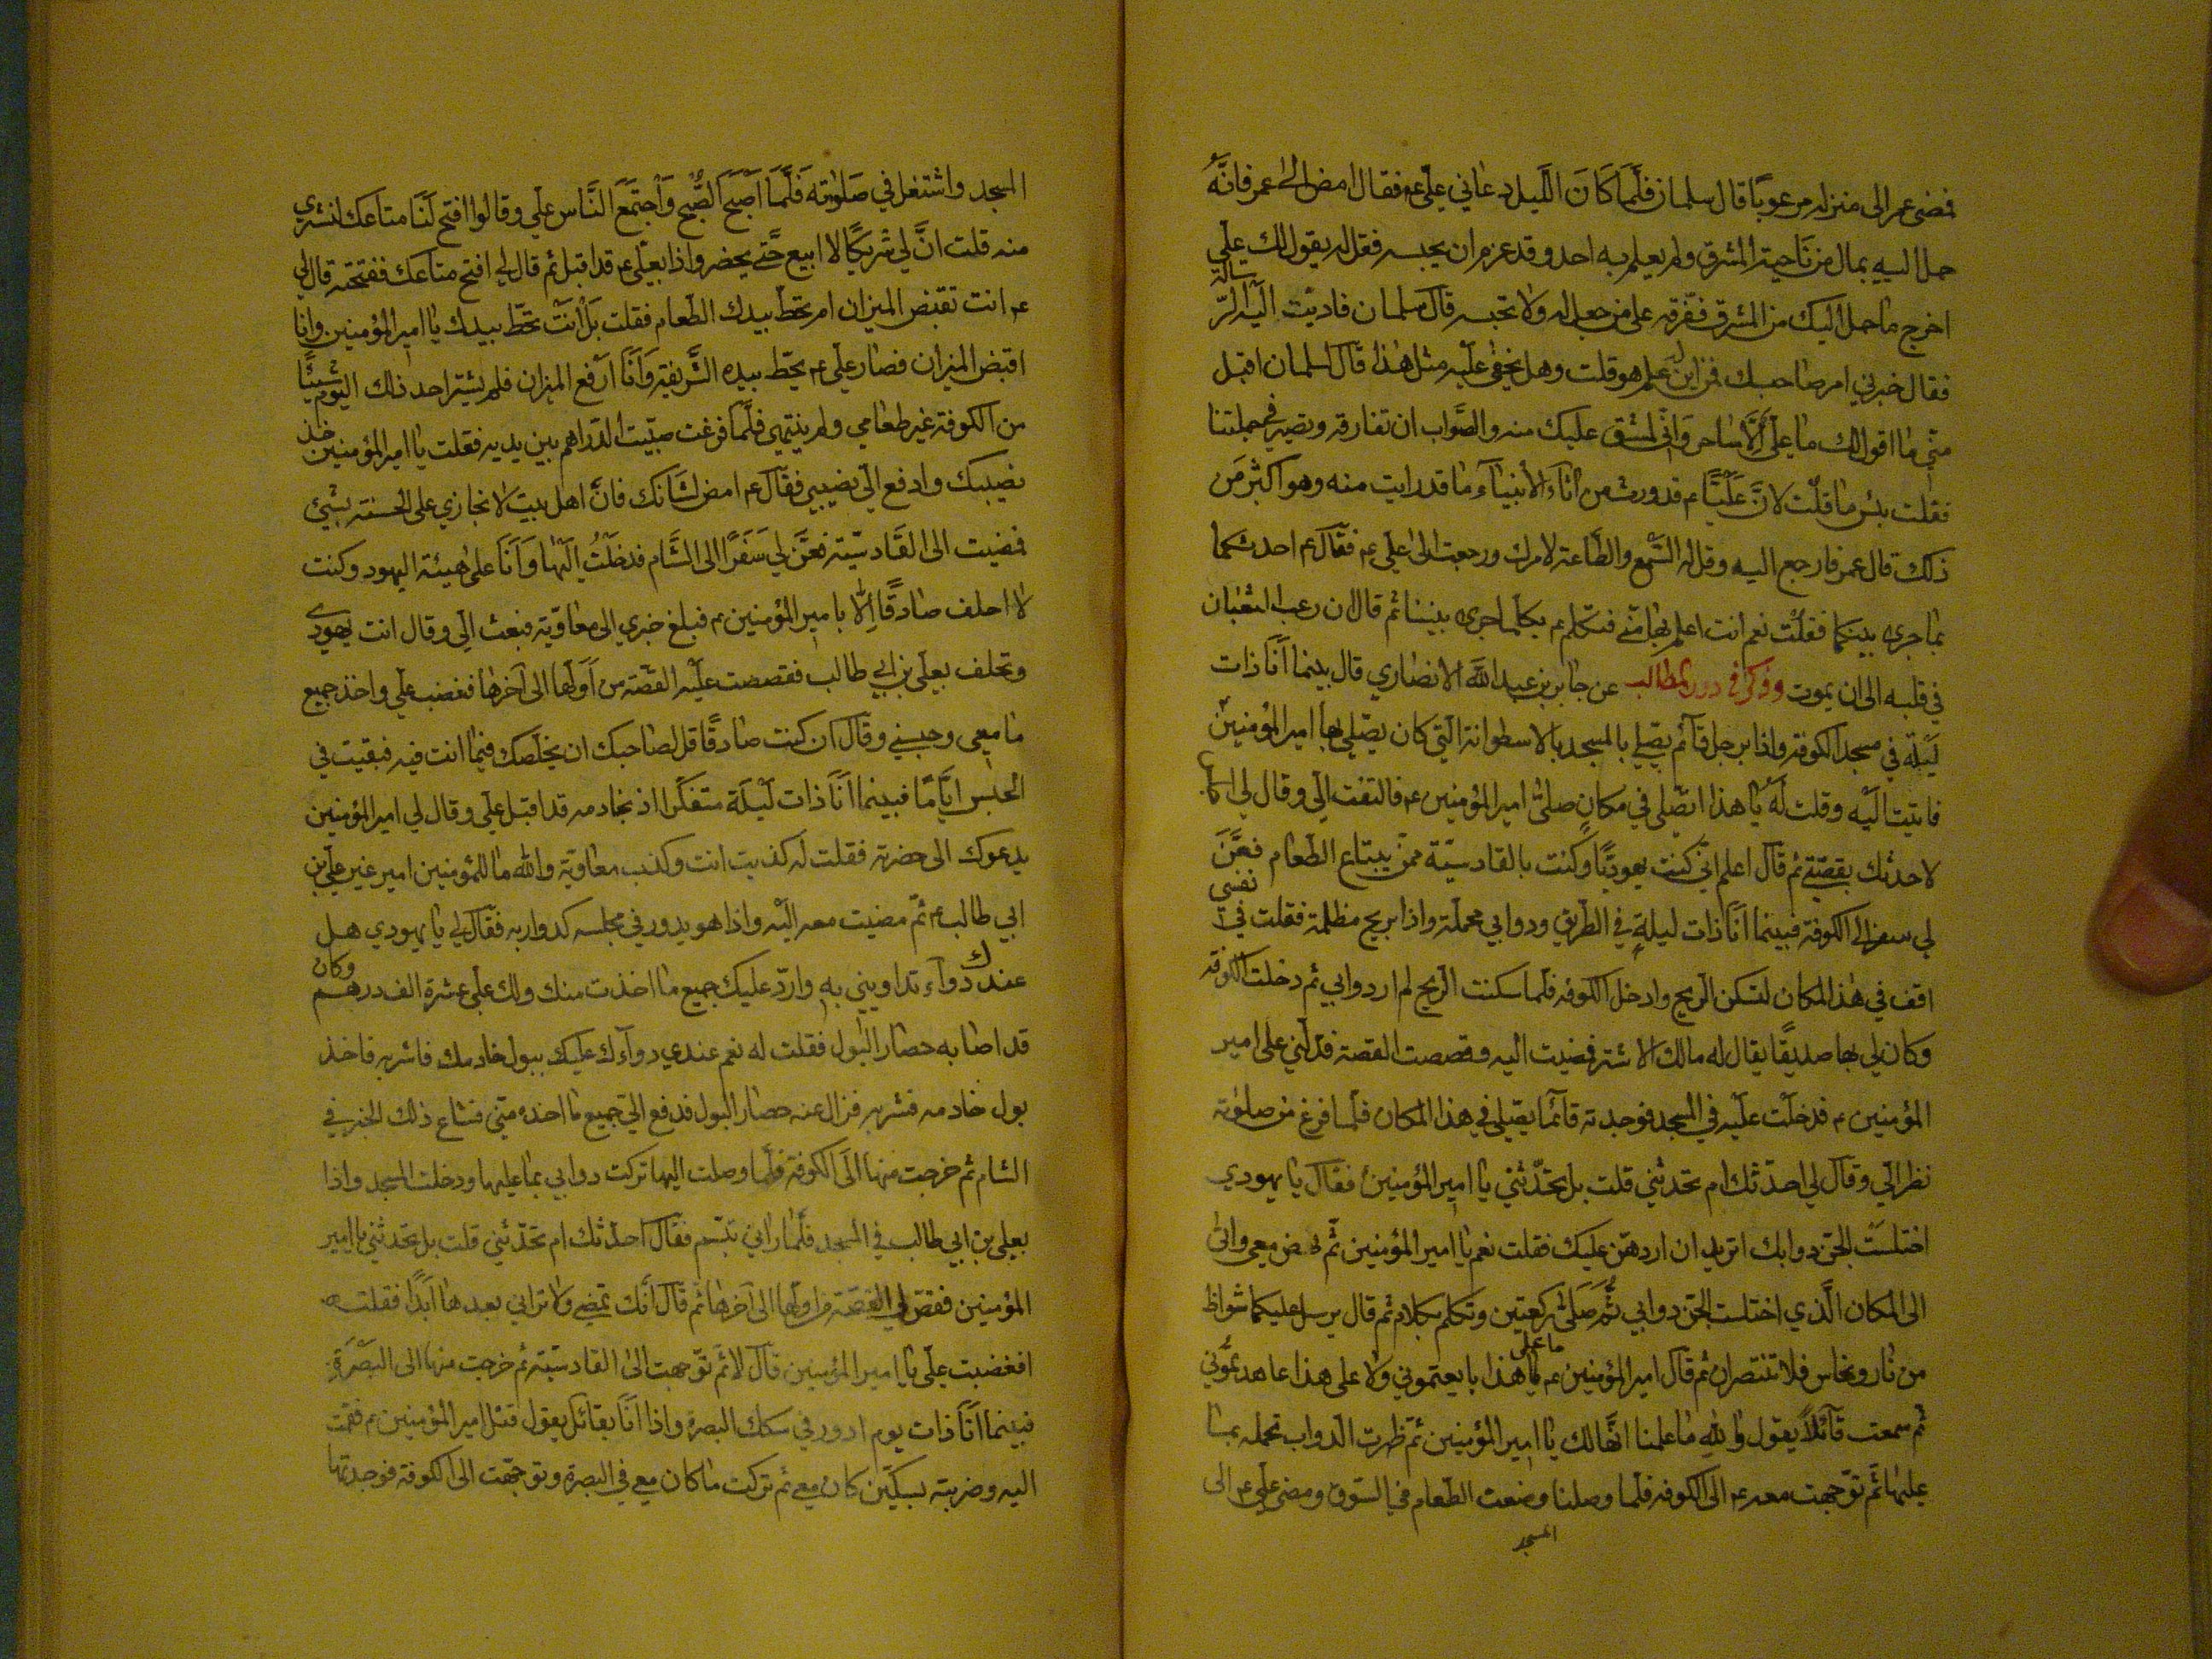 فمضى عمر الى منزله مرعوبًا قال سلمان فلَمّا كَانَ اللّيل دعاني علّي عم فقال امض الى عمر فانّه
حمل اليه بمال من ناحية المشرق ولم يعلم به احد وقد عزم ان يحبسه فقل له يقول لك علي
اخرج ما حمل اليك من المشرق ففرّقه على من جعل له ولا تحبسه قال سلمان فاديت اليه الرّسالة
فقال خبرني امر صاحبك فمن اين علم هو قلت وهل يخفى عليه مثل هذا قال سلمان اقبل
منّي ما اقول لك ما علّي الّا ساحر وَانّي لمشفق عليك منه والصّواب ان تفارقه وتصير في جملتنا
فقلت بئس ما قلت لانّ علّيّا عم قد ورث من اثار الأنبياء ما قد رايت منه وهو اكثر من
ذلك قال عمر فارجع اليه وقل له السّمع والطّاعة لامرك ورجعت الى علّي عم فقال عم احدثكما
بما جرى بينكما فقلت نعم انت اعلم بها منّي فتكلم عم بكلما جرى بيننا ثم قال ان رعب الثعبان
في قلبه الى ان يموت وذكر في درر المطالب عن جابر بن عبد الله الانصاري قال بينما اَنَا ذات
لَيْلة في مسجد الكوفة واذا برجل قائم يصّلي بالمسجد بالاسطوانة التي كان يصّلي بها امير المؤمنين
فاتيت اليه وقلت له يا هذا اتصّلي في مكان صلى امير المؤمنين عم فالتفت الّي وقال لي
لاحدثك بقصتي ثم قال اعلم انّي كنت يهوديًّا وكنت بالقادسيّة ممن يبتاع الطعام فعَنَّ
لي سفر الى الكوفة فبينما انَا ذات ليلةٍ في الطريق ودوابي محملة واذا بريح مظلمة فقلت في نفسي
اقف في هذا المكان لتسكن الريح وادخل الكوفة فلما سكنت الريح لم ار دوابي ثم دخلت الكوفة
وكان لي بها صديقًا يقال له مالك الاشتر فمضيت اليه وقصصت القصة فدلني على امير
المؤمنين عم فدخلت عليه في المسجد فوجدته قائما يصلي في هذا المكان فلما فرغ من صلوته
نظر الّي وقال لي احدّثك ام تحدثني قلت بل تحدّثني يا امير المؤمنين فقال يا يهودي
اختلست الجن دوابك اتريد ان اردهن عليك فقلت نعم يا امير المؤمنين ثم نهض معي واتى
الى المكان الّذي اختلست الجن دوابي ثُمّ صَلّى ركعتين وتكلم بكلام ثم قال يرسل عليكما شواظ
من نار ونحاس فلا تنتصران ثم قال امير المؤمنين عم ما على هذا بايعتموني ولا على هذا عاهدتموني
ثم سمعت قائلاً يقول والله ما علمنا انها لك يا امير المؤمنين ثم ظهرت الدواب محملة بما
عليها ثم توجهت معه عم الى الكوفة فلما وصلنا وضعت الطعام في السّوق ومضى علي عم الى
المسجد
المسجد واشتغل في صَلوته فَلَمّا اَصْبَحَ الصُّبح وَاجتَمَعَ النَّاس علي وقالوا افتح لَنَا متاعك لنشري
منه قلت انَّ لي شريكًا لا ابيع حتى يحضر واذا بعلّي عم قد اقبل ثم قال لي افتح متاعك ففتحته قال لي
عم انت تقبض الميزان ام تحط بيدك الطّعام فقلت بَلْ اَنْتَ تحّط بيدك يا امير المؤمنين وانا
اقبض الميزان فصار علّي عم يحّط بيده الشّريفة وَاَنَا اَرْفع الميزان فلم يشتر احد ذلك اليوم شيئًا
من الكوفة غير طعامي ولم ينتهي فلّما فرغت صبّيت الدّراهم بين يديه فقلت يا امير المؤمنين خذ
نصيبك وادفع الّي نصيبي فقال عم امض لشانك فانَّ اهل بيت لا نجازي على الحسنة بشئ
فمضيت الى القَادسّية فعنَّ لي سَفَرًا الى الشّام فدخلْتُ اليْها وَاَنَا على هيئة اليهود وكنت
لا احلف صادقًا اِلّا بامير المؤمنين عم فبلغ خبري الى معاوّية فبعث الّي وقال انت يهودي
وتحلف بعلي بن ابي طالب فقصصت عليْه القّصة من اَولَها الى آخرها فغضب علّي واخذ جميع
ما معي وحبسني وقال ان كنت صادقًا قل لصاحبك ان يخلّصك فيما انت فيه فبقيت في
الحبس ايّامًا فبينما اَنَا ذات لَيْلَة متفكّرا اذ بخادمه قد اقبل علّي وقال لي امير المؤمنين
يدعوك الى حضرته فقلت له كذبت انت وكذب معاوّية والله ما للمؤمنين امير غير علي بن
ابي طالب عم ثمّ مضيت معه اليْه واذا هو يدور في مجلسه كدوارة فقال لي يا يهودي هل
عندك دواء تداويني به واردّ عليك جميع ما اخذت منك ولك علّي عشرة الف درهم وكان
قد اصابه حصار البول فقلت له نعم عندي دواءك عليك ببول خادمك فاشربه فاخذ
بول خادمه فشربه فزال عنه حصار البول فدفع الّي جميع ما اخذه منّي فشاع ذلك الخبر في
الشام ثم خرجت منها الَى الكوفة فلّما وصلت اليها تركت دوابي بما عليها ودخلت المسجد واذا
بعلي بن ابي طالب في المسجد فلّما راني تبسّم فقال احدّثك ام تحدّثني قلت بل تحدثني يا امير
المؤمنين فقصّ لي القصّة من اولها الى آخرها ثم قال انّك تمضي ولا تراني بعدها اَبَدًا فقلت
افغضبت علّي يا امير المؤمنين قال لا ثم توجهت الى القادسّية ثم خرجت منها الى البَصْرَة
فبينما اَنَا ذات يوم ادور في سكك البصرة واذا اَنَا بقائل يقول قتل امير المؤمنين عم فقمت
اليه وضربته بسكّين كان معي ثم تركت ما كان معي في البصرة وتوجّهت الى الكوفة فوجدتها